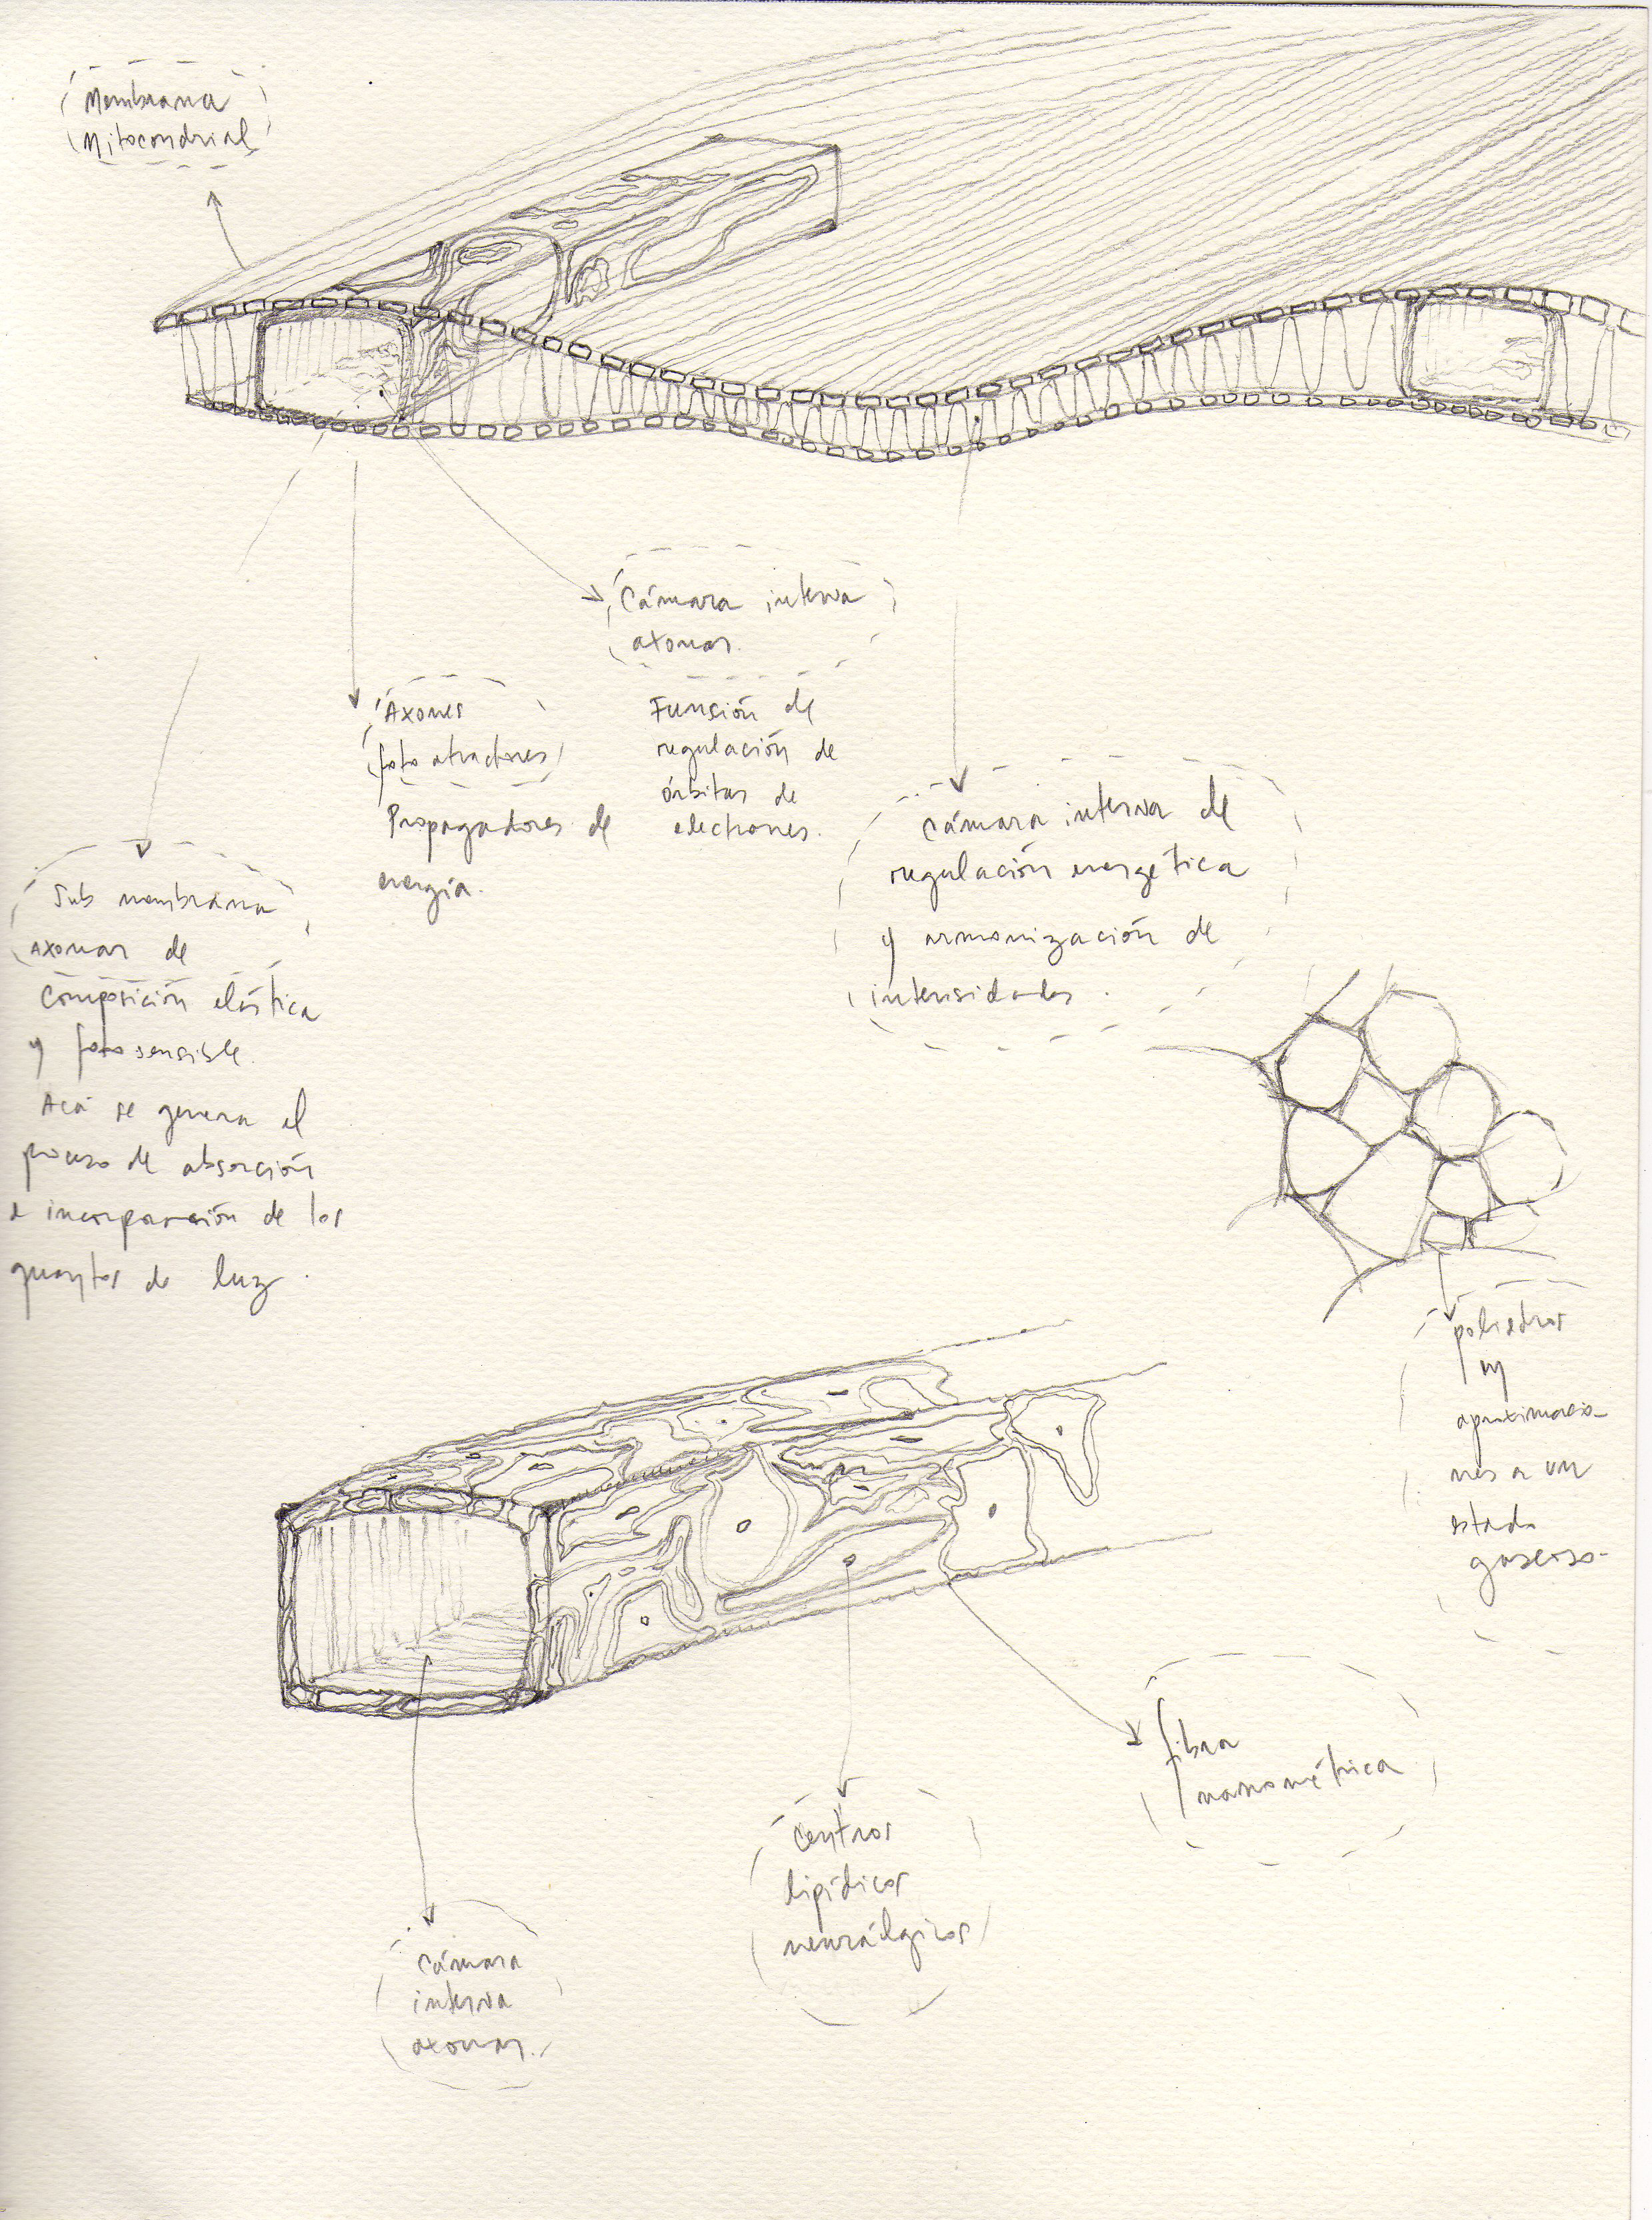 Membrana
Mitocondrial
Cámara interna
axonar.
Función de
regulación de
órbitas de
electrones.
Axones
foto atractores
Propagadores de
energía.
Cámara interna de
regulación energética
y armonización de
intensidades.
Sub membrana
axonar de
composición elástica
y fotosensible.
Acá se genera el
proceso de absorción
e incorporación de los
quantos de luz.
poliedros
en
aproximacio-
nes a un
estado
gaseoso.
fibra
nanométrica
Centros
lipídicos
neurálgicos
Cámara
interna
axonar.